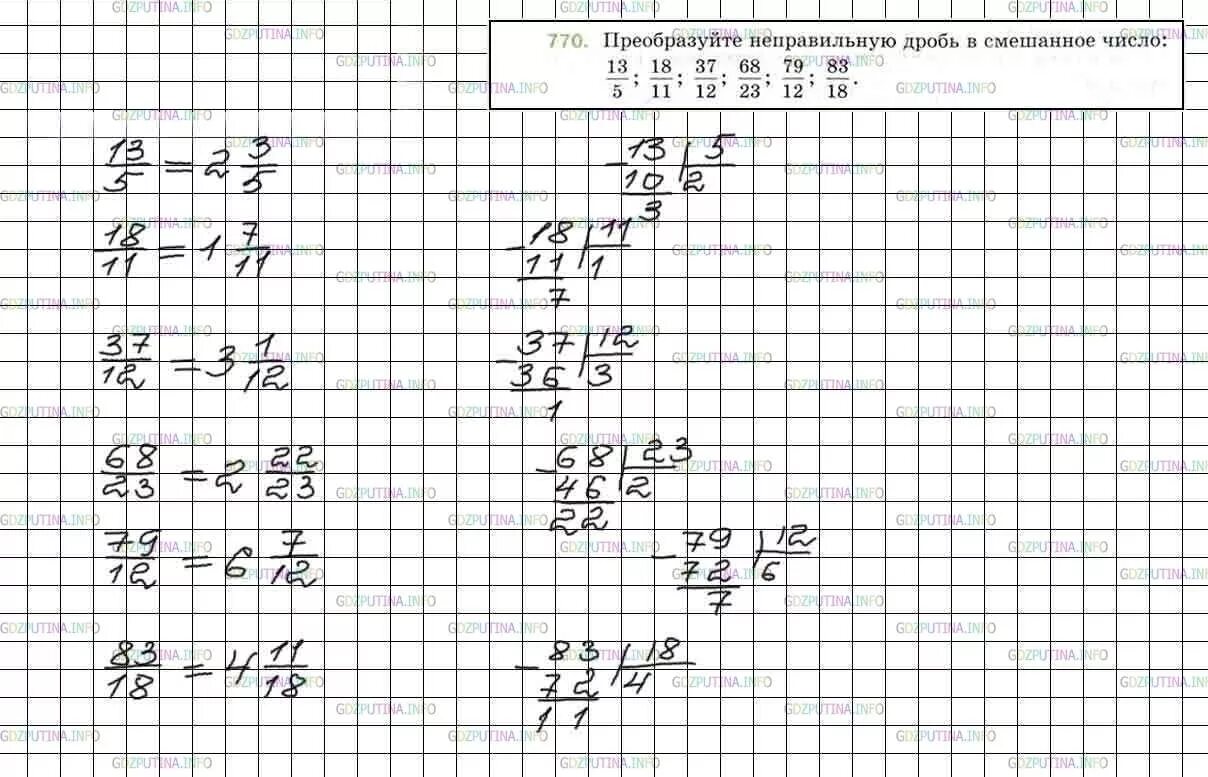 770. Преобразуйте неправильную дробь в смешанное число:
13/5; 18/11; 37/12; 68/23; 79/12; 83/18.
13/5 = 2 3/5
13 | 5
- 10 | 2
3
18/11 = 1 7/11
18 | 11
- 11 | 1
7
37/12 = 3 1/12
37 | 12
- 36 | 3
1
68/23 = 2 22/23
68 | 23
- 46 | 2
22
79/12 = 6 7/12
79 | 12
- 72 | 6
7
83/18 = 4 11/18
83 | 18
- 72 | 4
11
GDZPUTINA.INFO